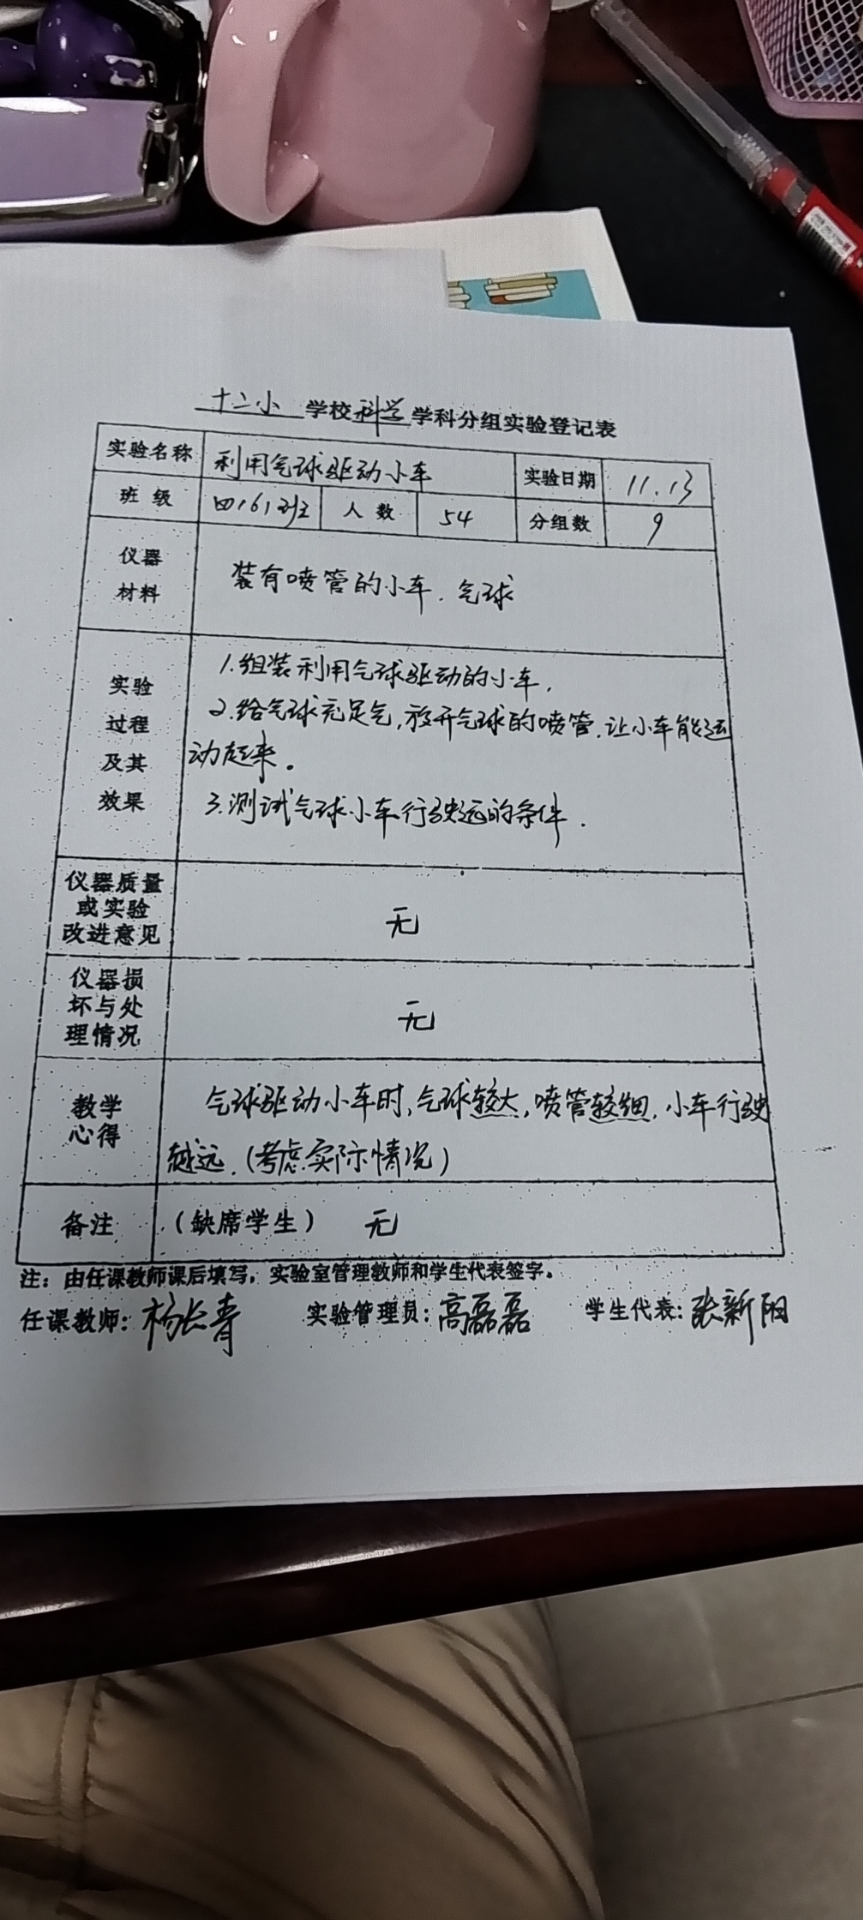 十二小 学校科学学科分组实验登记表
实验名称 利用气球驱动小车 实验日期 11.13
班级 四(6)班 人数 54 分组数 9
仪器
材料
装有喷管的小车.气球
实验
过程
及其
效果
1.组装利用气球驱动的小车.
2.给气球充足气,放开气球的喷管.让小车能运
动起来。
3.测试气球小车行驶远的条件.
仪器质量
或实验
改进意见
无
仪器损
坏与处
理情况
无
教学
心得
气球驱动小车时,气球较大,喷管较细.小车行驶
越远.(考虑实际情况)
备注 (缺席学生) 无
注:由任课教师课后填写,实验室管理教师和学生代表签字。
任课教师:杨长青 实验管理员:高磊磊 学生代表:张新阳